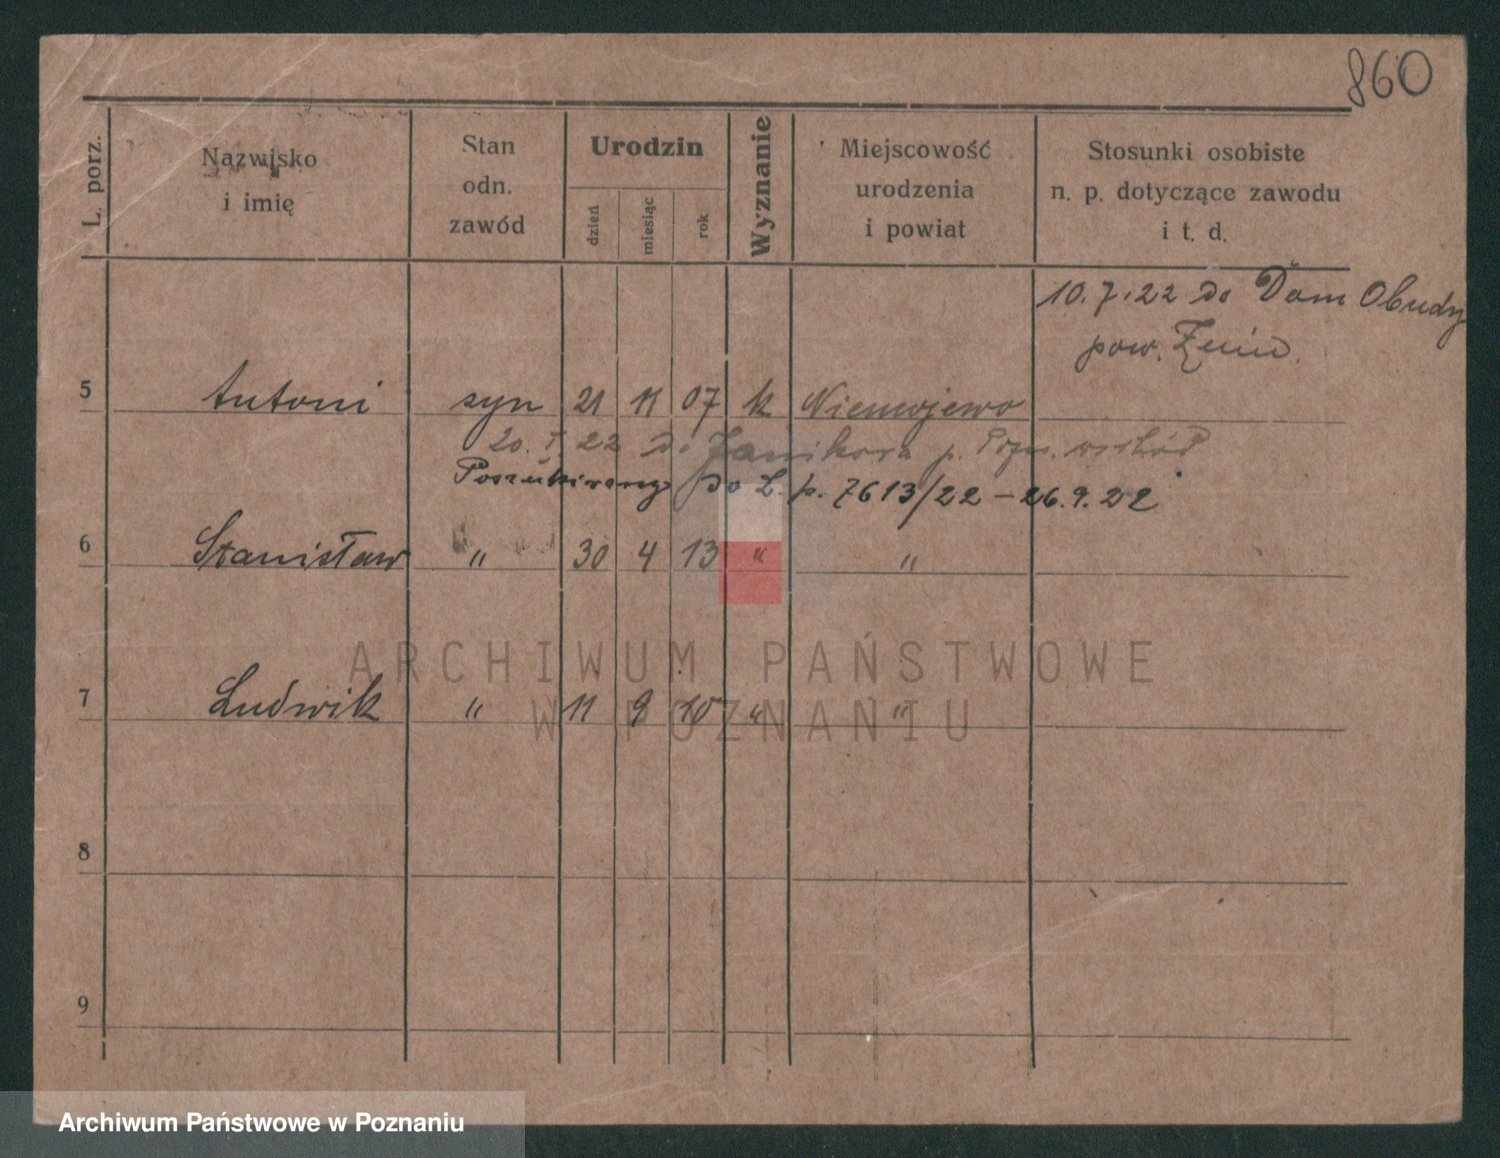 860
L. porz.
Nazwisko
i imię
Stan
odn.
zawód
Urodzin
dzień
miesiąc
rok
Wyznanie
Miejscowość
urodzenia
i powiat
Stosunki osobiste
n. p. dotyczące zawodu
i t. d.
10.7.22 do Dom Obudy
pow. Żnin.
5 Antoni syn 21 11 07 k Niemojewo
20. 22 do Janikowa p. Pozn. wschód
Poszukiwany do L. p. 7613/22 – 26.9.22
6 Stanisław " 30 4 13 " "
ARCHIWUM PAŃSTWOWE
W POZNANIU
7 Ludwik " 11 9 10 " "
8
9
Archiwum Państwowe w Poznaniu